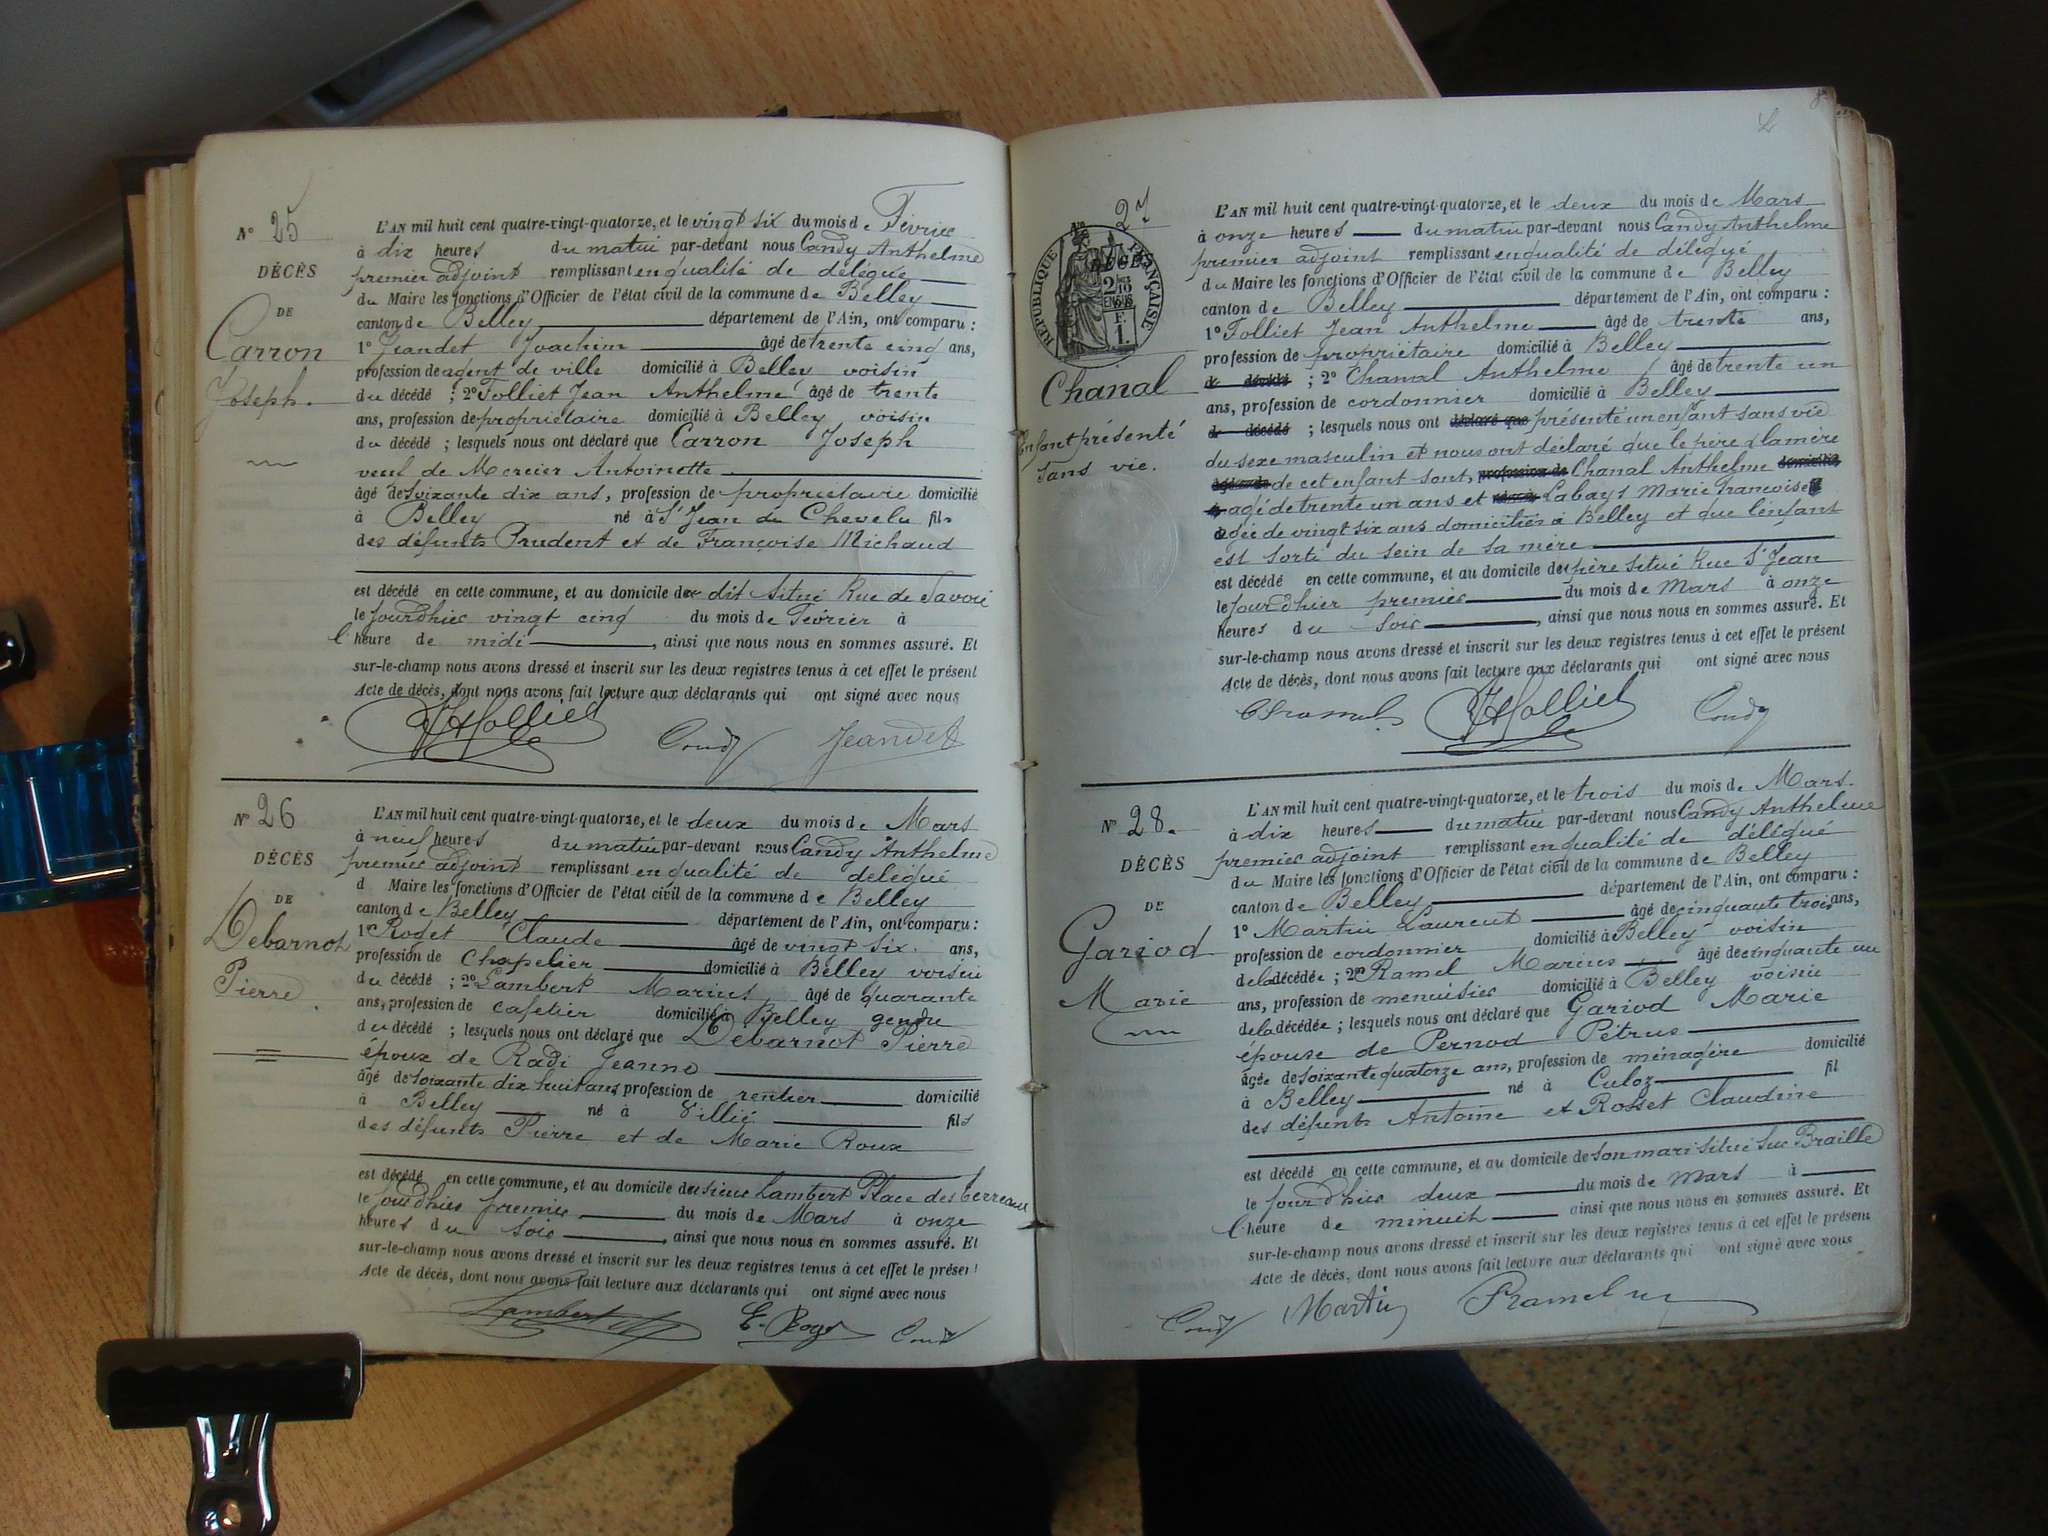 N° 25
DÉCÈS
DE
Carron
Joseph.
L'AN mil huit cent quatre-vingt-quatorze, et le vingt six du mois de Février
à dix heures du matin par-devant nous Candy Anthelme
premier adjoint remplissant en qualité de délégué
du Maire les fonctions d'Officier de l'état civil de la commune de Belley
canton de Belley département de l'Ain, ont comparu :
1° Jeandet Joachim âgé de trente cinq ans,
profession de agent de ville domicilié à Belley voisin
du décédé ; 2° Tolliet Jean Anthelme âgé de trente
ans, profession de propriétaire domicilié à Belley voisin
du décédé ; lesquels nous ont déclaré que Carron Joseph
veuf de Mercier Antoinette
âgé de soixante dix ans, profession de propriétaire domicilié
à Belley né à St Jean du Chevelu fils
des défunts Prudent et de Françoise Michaud
est décédé en cette commune, et au domicile de dit situé Rue de Savoie
le jourd'hier vingt cinq du mois de Février à
l'heure de midi, ainsi que nous nous en sommes assuré. Et
sur-le-champ nous avons dressé et inscrit sur les deux registres tenus à cet effet le présent
Acte de décès, dont nous avons fait lecture aux déclarants qui ont signé avec nous
JATolliet Candy Jeandet
N° 26
DÉCÈS
DE
Debarnot
Pierre
L'AN mil huit cent quatre-vingt-quatorze, et le deux du mois de Mars
à neuf heures du matin par-devant nous Candy Anthelme
premier adjoint remplissant en qualité de délégué
d Maire les fonctions d'Officier de l'état civil de la commune de Belley
canton de Belley département de l'Ain, ont comparu :
1° Roget Claude âgé de vingt six ans,
profession de chapelier domicilié à Belley voisin
du décédé ; 2° Lambert Marius âgé de quarante
ans, profession de cafetier domicilié à Belley gendre
du décédé ; lesquels nous ont déclaré que Debarnot Pierre
époux de Radi Jeanne
âgé de soixante dix huit ans, profession de rentier domicilié
à Belley né à Villié fils
des défunts Pierre et de Marie Roux
est décédé en cette commune, et au domicile du sieur Lambert Place des Terreaux
le jourd'hier premier du mois de Mars à onze
heures du soir, ainsi que nous nous en sommes assuré. Et
sur-le-champ nous avons dressé et inscrit sur les deux registres tenus à cet effet le présent
Acte de décès, dont nous avons fait lecture aux déclarants qui ont signé avec nous
Lambert Roget Candy
N° 27
RÉPUBLIQUE FRANÇAISE
DÉCÈS
2/10 EN SUS
F.
1.
Chanal
Enfant présenté
sans vie.
L'AN mil huit cent quatre-vingt-quatorze, et le deux du mois de Mars
à onze heures du matin par-devant nous Candy Anthelme
premier adjoint remplissant en qualité de délégué
du Maire les fonctions d'Officier de l'état civil de la commune de Belley
canton de Belley département de l'Ain, ont comparu :
1° Tolliet Jean Anthelme âgé de trente ans,
profession de propriétaire domicilié à Belley
d décédé ; 2° Chanal Anthelme âgé de trente un
ans, profession de cordonnier domicilié à Belley
d décédé ; lesquels nous ont déclaré que présenté un enfant sans vie
du sexe masculin et nous ont déclaré que le père & la mère
de cet enfant sont, profession de Chanal Anthelme domicilié
agé de trente un ans et Labays Marie Françoise
agée de vingt six ans domiciliés à Belley et que l'enfant
est sorti du sein de sa mère
est décédé en cette commune, et au domicile des père situé Rue St Jean
le jourd'hier premier du mois de Mars à onze
heures du soir, ainsi que nous nous en sommes assuré. Et
sur-le-champ nous avons dressé et inscrit sur les deux registres tenus à cet effet le présent
Acte de décès, dont nous avons fait lecture aux déclarants qui ont signé avec nous
Chanal JATolliet Candy
N° 28.
DÉCÈS
DE
Gariod
Marie
L'AN mil huit cent quatre-vingt-quatorze, et le trois du mois de Mars.
à dix heures du matin par-devant nous Candy Anthelme
premier adjoint remplissant en qualité de délégué
du Maire les fonctions d'Officier de l'état civil de la commune de Belley
canton de Belley département de l'Ain, ont comparu :
1° Martin Laurent âgé de cinquante trois ans,
profession de cordonnier domicilié à Belley voisin
de la décédée ; 2° Ramel Marius âgé de cinquante un
ans, profession de menuisier domicilié à Belley voisin
de la décédée ; lesquels nous ont déclaré que Gariod Marie
épouse de Pernod Pétrus
âgée de soixante quatorze ans, profession de ménagère domicilié
à Belley né à Culoz fil
des défunts Antoine et Rosset Claudine
est décédé en cette commune, et au domicile de son mari situé Rue Braille
le jourd'hier deux du mois de Mars à
l'heure de minuit ainsi que nous nous en sommes assuré. Et
sur-le-champ nous avons dressé et inscrit sur les deux registres tenus à cet effet le présent
Acte de décès, dont nous avons fait lecture aux déclarants qui ont signé avec nous
Candy Martin Ramel